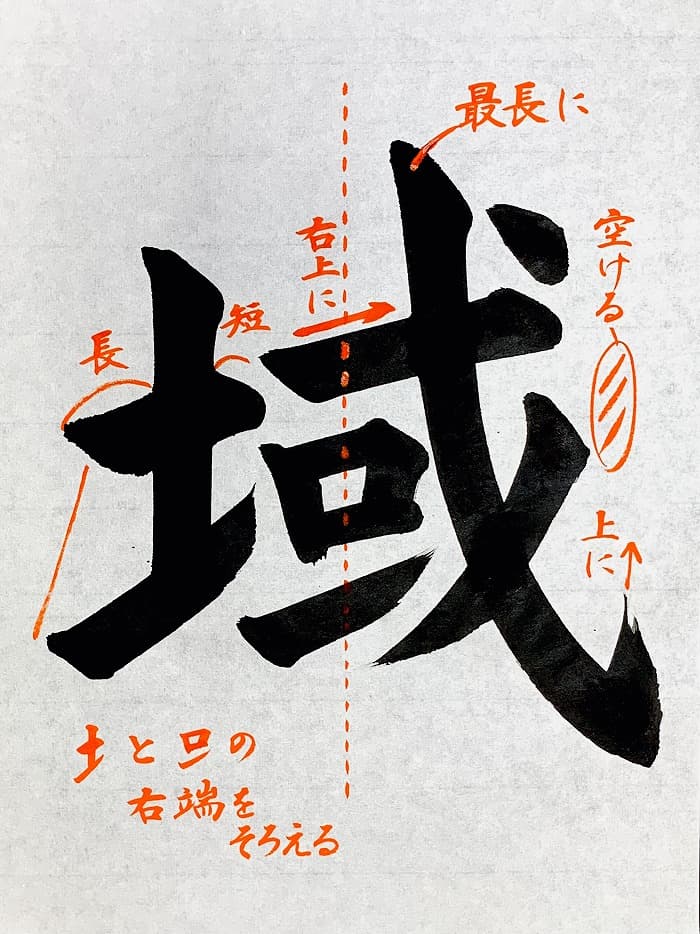 域
最長に
空ける
上に
右上に
短
長
土と口の
右端を
そろえる